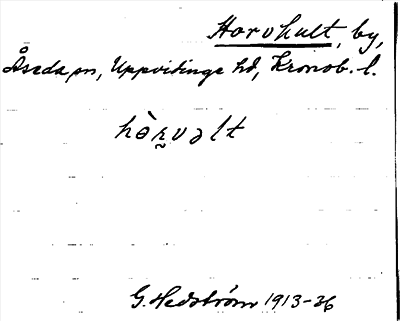 Horvhult, by,
Åseda sn, Uppvidinge hd, Kronob. l.
hàr̰vəlt
G. Hedström 1913-26